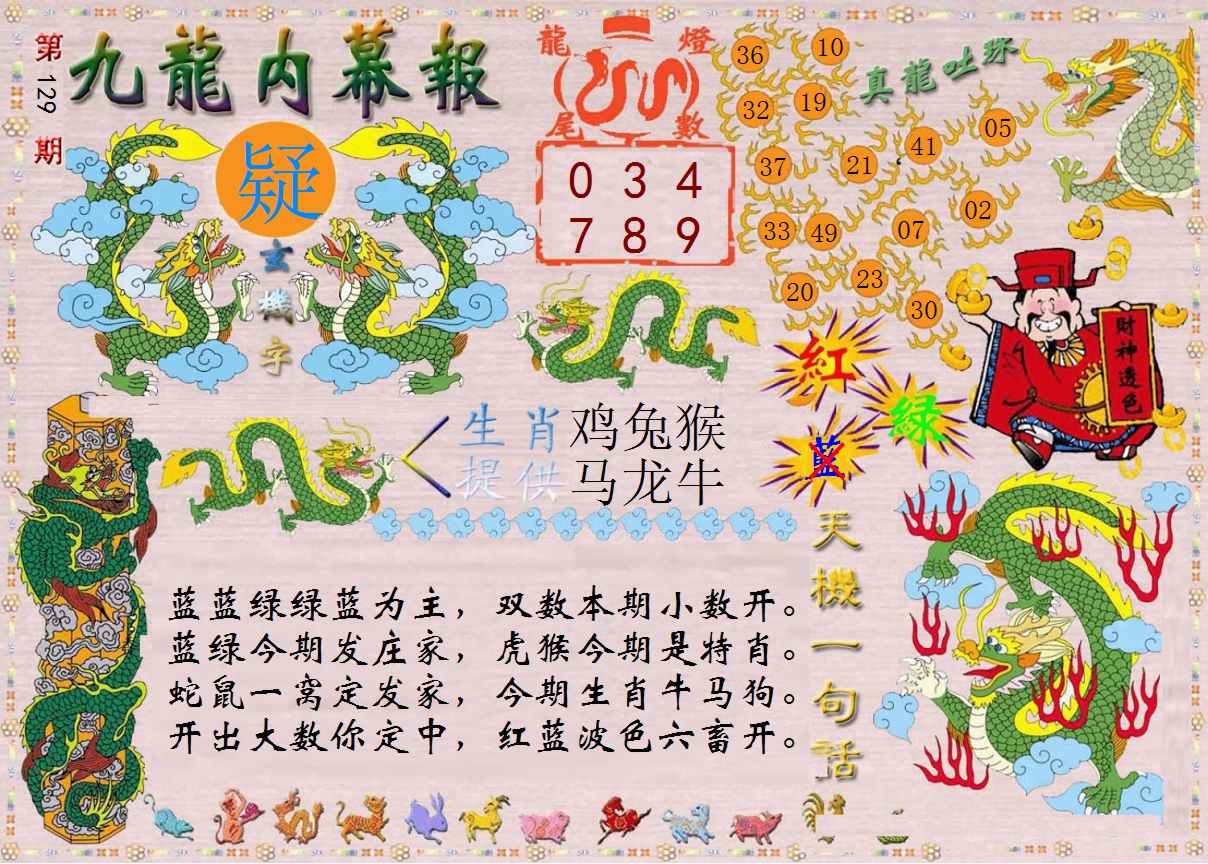 第129期
九龍内幕報
疑
玄機字
龍燈
尾數
0 3 4
7 8 9
真龍吐珠
36 10
32 19
37 21 41 05
33 49 07 02
20 23 30
財神透色
紅
綠
藍
生肖 鸡兔猴
提供 马龙牛
天機一句話
蓝蓝绿绿蓝为主，双数本期小数开。
蓝绿今期发庄家，虎猴今期是特肖。
蛇鼠一窝定发家，今期生肖牛马狗。
开出大数你定中，红蓝波色六畜开。